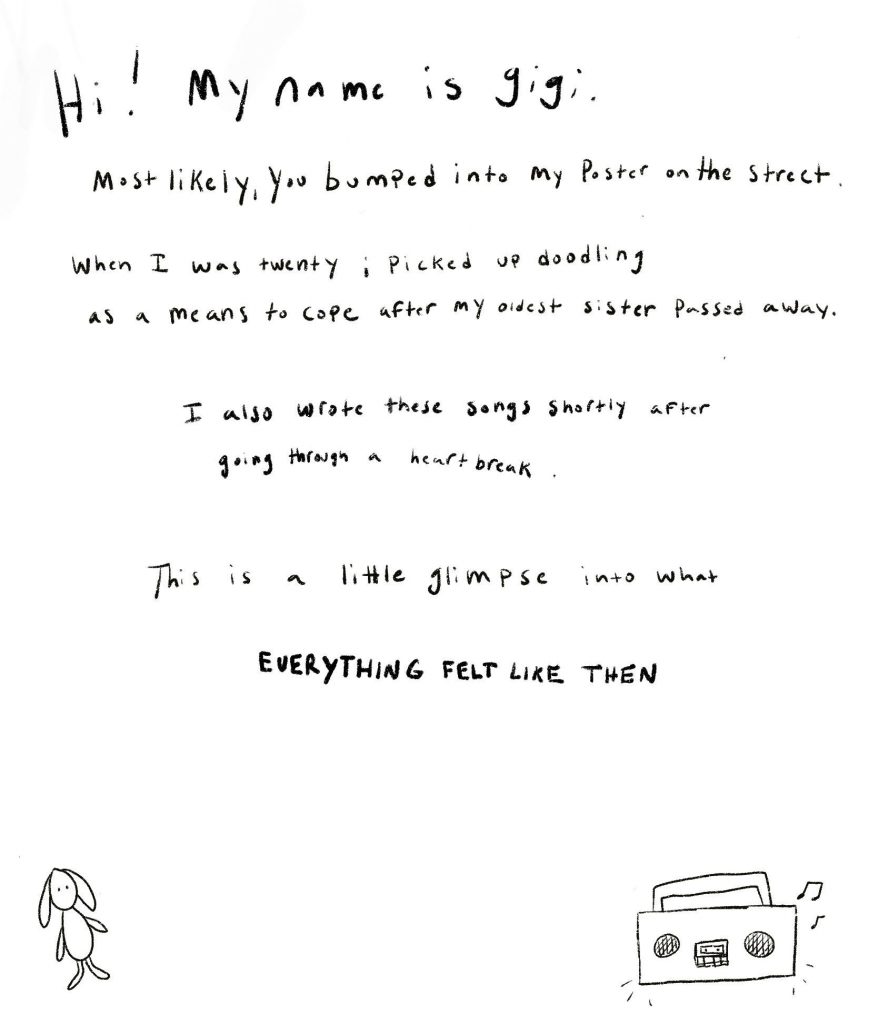 Hi! My name is gigi.
Most likely, you bumped into my poster on the street.
When I was twenty i picked up doodling
as a means to cope after my oldest sister passed away.
I also wrote these songs shortly after
going through a heartbreak.
This is a little glimpse into what
EVERYTHING FELT LIKE THEN